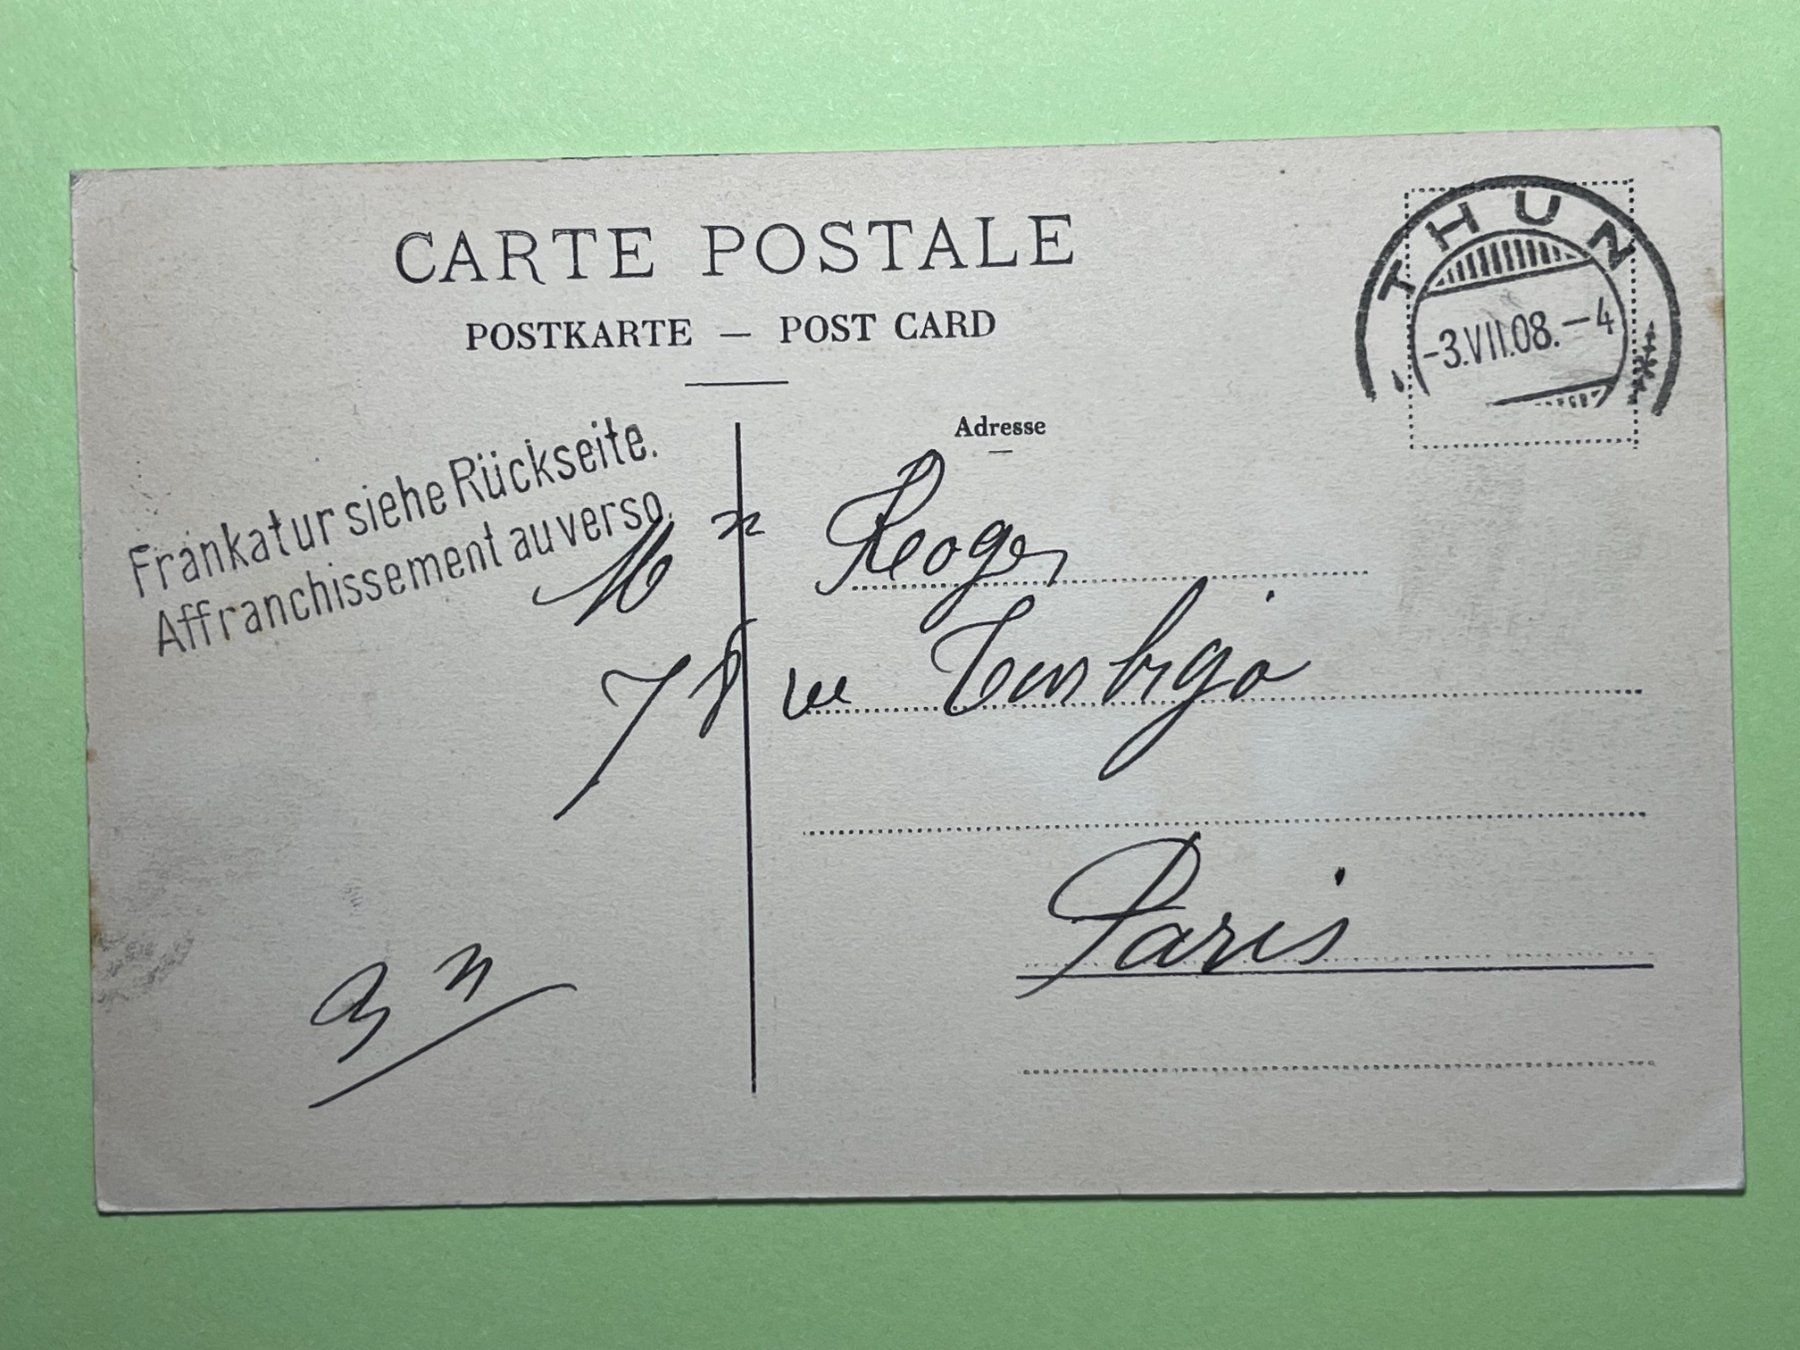 CARTE POSTALE
POSTKARTE — POST CARD
THUN
-3.VII.08.-4
Adresse
Frankatur siehe Rückseite.
Affranchissement au verso.
Roger
rue Turbigo
Paris